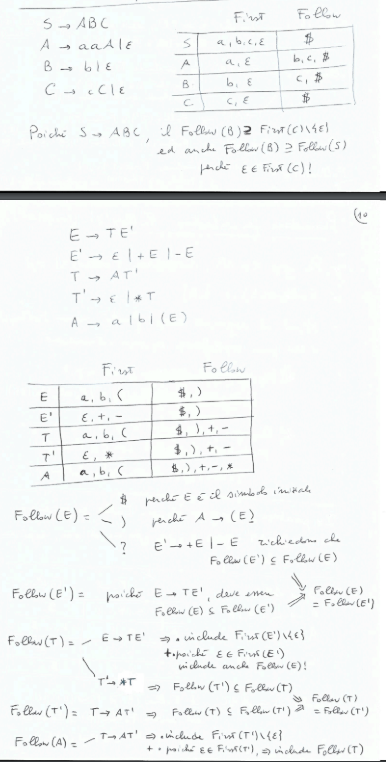 First Follow
S → ABC
A → aaA | ε
B → b | ε
C → cC | ε
S a, b, c, ε $
A a, ε b, c, $
B b, ε c, $
C c, ε $
Poiché S → ABC, il Follow(B) ⊇ First(C)\{ε}
ed anche Follow(B) ⊇ Follow(S)
perché ε ∈ First(C)!
10
E → TE'
E' → ε | +E | -E
T → AT'
T' → ε | *T
A → a | b | (E)
First Follow
E a, b, ( $, )
E' ε, +, - $, )
T a, b, ( $, ), +, -
T' ε, * $, ), +, -
A a, b, ( $, ), +, -, *
Follow(E) = $ perché E è il simbolo iniziale
) perché A → (E)
? E' → +E | -E richiedono che
Follow(E') ⊆ Follow(E)
Follow(E') = poiché E → TE', deve essere
Follow(E) ⊆ Follow(E')
⇒ Follow(E) = Follow(E')
Follow(T) = E → TE' ⇒ • include First(E')\{ε}
+ • poiché ε ∈ First(E')
include anche Follow(E)!
T' → *T ⇒ Follow(T') ⊆ Follow(T)
Follow(T') = T → AT' ⇒ Follow(T) ⊆ Follow(T') ⇒ Follow(T) = Follow(T')
Follow(A) = T → AT' ⇒ • include First(T')\{ε}
+ • poiché ε ∈ First(T'), ⇒ include Follow(T)